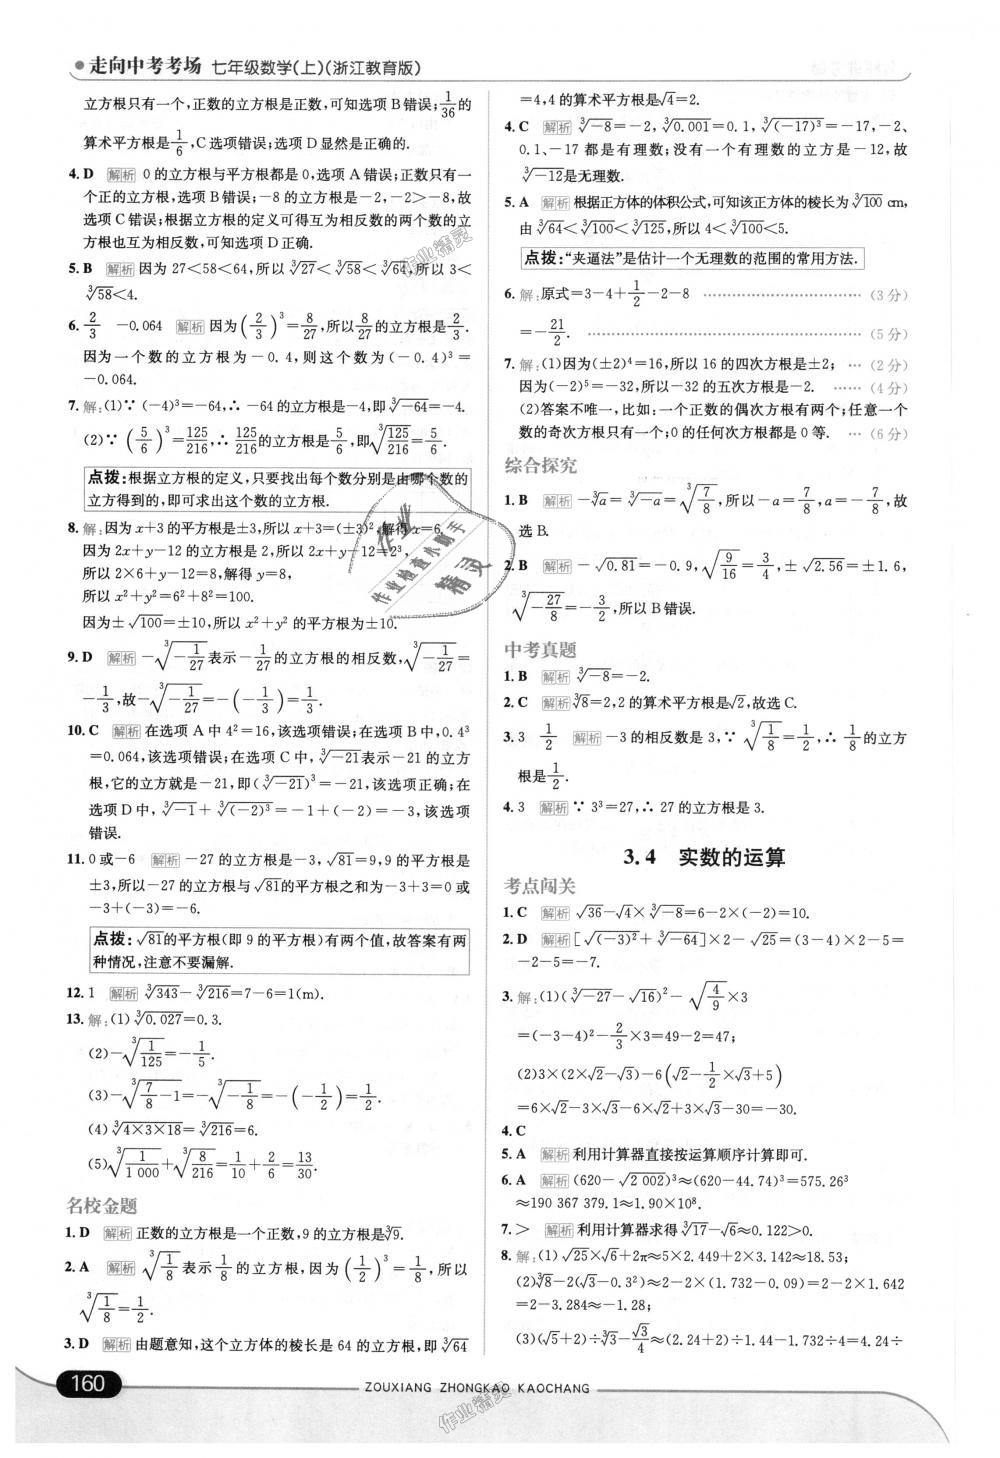 走向中考考场 七年级数学(上)(浙江教育版)
立方根只有一个,正数的立方根是正数,可知选项B错误;1/36的
算术平方根是1/6,C选项错误;选项D显然是正确的.
4. D 解析 0的立方根与平方根都是0,选项A错误;正数只有一
个正的立方根,选项B错误;-8的立方根是-2,-2>-8,故
选项C错误;根据立方根的定义可得互为相反数的两个数的立
方根也互为相反数,可知选项D正确.
5. B 解析 因为27<58<64,所以∛27<∛58<∛64,所以3<
∛58<4.
6. 2/3 -0.064 解析 因为(2/3)³=8/27,所以8/27的立方根是2/3.
因为一个数的立方根为-0.4,则这个数为(-0.4)³=
-0.064.
7. 解:(1)∵(-4)³=-64,∴-64的立方根是-4,即∛-64=-4.
(2)∵(5/6)³=125/216,∴125/216的立方根是5/6,即∛(125/216)=5/6.
点拨:根据立方根的定义,只要找出每个数分别是由哪个数的
立方得到的,即可求出这个数的立方根.
8. 解:因为x+3的平方根是±3,所以x+3=(±3)²,解得x=6.
因为2x+y-12的立方根是2,所以2x+y-12=2³,
所以2×6+y-12=8,解得y=8,
所以x²+y²=6²+8²=100.
因为±√100=±10,所以x²+y²的平方根为±10.
9. D 解析 -∛(-1/27)表示-1/27的立方根的相反数,∛(-1/27)=
-1/3,故-∛(-1/27)=-(-1/3)=1/3.
10. C 解析 在选项A中4²=16,该选项错误;在选项B中,0.4³
=0.064,该选项错误;在选项C中,∛-21表示-21的立方
根,它的立方就是-21,即(∛-21)³=-21,该选项正确;在
选项D中,∛-1+∛(-2)³=-1+(-2)=-3,该选项
错误.
11. 0或-6 解析 -27的立方根是-3,√81=9,9的平方根是
±3,所以-27的立方根与√81的平方根之和为-3+3=0或
-3+(-3)=-6.
点拨:√81的平方根(即9的平方根)有两个值,故答案有两
种情况,注意不要漏解.
12. 1 解析 ∛343-∛216=7-6=1(m).
13. 解:(1)∛0.027=0.3.
(2)-∛(1/125)=-1/5.
(3)-∛(7/8-1)=-∛(-1/8)=-(-1/2)=1/2.
(4)∛(4×3×18)=∛216=6.
(5)∛(1/1 000)+∛(8/216)=1/10+2/6=13/30
名校金题
1. D 解析 正数的立方根是一个正数,9的立方根是∛9.
2. A 解析 ∛(1/8)表示1/8的立方根,因为(1/2)³=1/8,所以
∛(1/8)=1/2.
3. D 解析 由题意知,这个立方体的棱长是64的立方根,即∛64
=4,4的算术平方根是√4=2.
4. C 解析 ∛-8=-2,∛0.001=0.1,∛(-17)³=-17,-2、
0.1、-17都是有理数;没有一个有理数的立方是-12,故
∛-12是无理数.
5. A 解析 根据正方体的体积公式,可知该正方体的棱长为∛100 cm,
由∛64<∛100<∛125,所以4<∛100<5.
点拨:“夹逼法”是估计一个无理数的范围的常用方法.
6. 解:原式=3-4+1/2-2-8 ……………………(3分)
=-21/2. ……………………(5分)
7. 解:(1)因为(±2)⁴=16,所以16的四次方根是±2; …(2分)
因为(-2)⁵=-32,所以-32的五次方根是-2. ……(4分)
(2)答案不唯一,比如:一个正数的偶次方根有两个;任意一个
数的奇次方根只有一个;0的任何次方根都是0等. …(6分)
综合探究
1. B 解析 -∛a=∛-a=∛(7/8),所以-a=7/8,a=-7/8,故
选B.
2. B 解析 -√0.81=-0.9,√(9/16)=3/4,±√2.56=±1.6,
∛(-27/8)=-3/2,所以B错误.
中考真题
1. B 解析 ∛-8=-2.
2. C 解析 ∛8=2,2的算术平方根是√2,故选C.
3. 3 1/2 解析 -3的相反数是3,∵∛(1/8)=1/2,∴1/8的立方
根是1/2.
4. 3 解析 ∵3³=27,∴27的立方根是3.
3.4 实数的运算
考点闯关
1. C 解析 √36-√4×∛-8=6-2×(-2)=10.
2. D 解析 [√(-3)²+∛-64]×2-√25=(3-4)×2-5=
-2-5=-7.
3. 解:(1)(∛-27-√16)²-√(4/9)×3
=(-3-4)²-2/3×3=49-2=47;
(2)3×(2×√2-√3)-6(√2-1/2×√3+5)
=6×√2-3×√3-6×√2+3×√3-30=-30.
4. C
5. A 解析 利用计算器直接按运算顺序计算即可.
6. A 解析 (620-√2 002)³≈(620-44.74)³=575.26³
≈190 367 379.1≈1.90×10⁸.
7. > 解析 利用计算器求得∛17-√6≈0.122>0.
8. 解:(1)√25×√6+2π≈5×2.449+2×3.142≈18.53;
(2)∛8-2(√3-0.3²)≈2-2×(1.732-0.09)=2-2×1.642
=2-3.284≈-1.28;
(3)(√5+2)÷∛3-√3/4≈(2.24+2)÷1.44-1.732÷4=4.24÷
160
ZOUXIANG ZHONGKAO KAOCHANG
作业精灵
作业
作业检查小助手
精灵
作业精灵